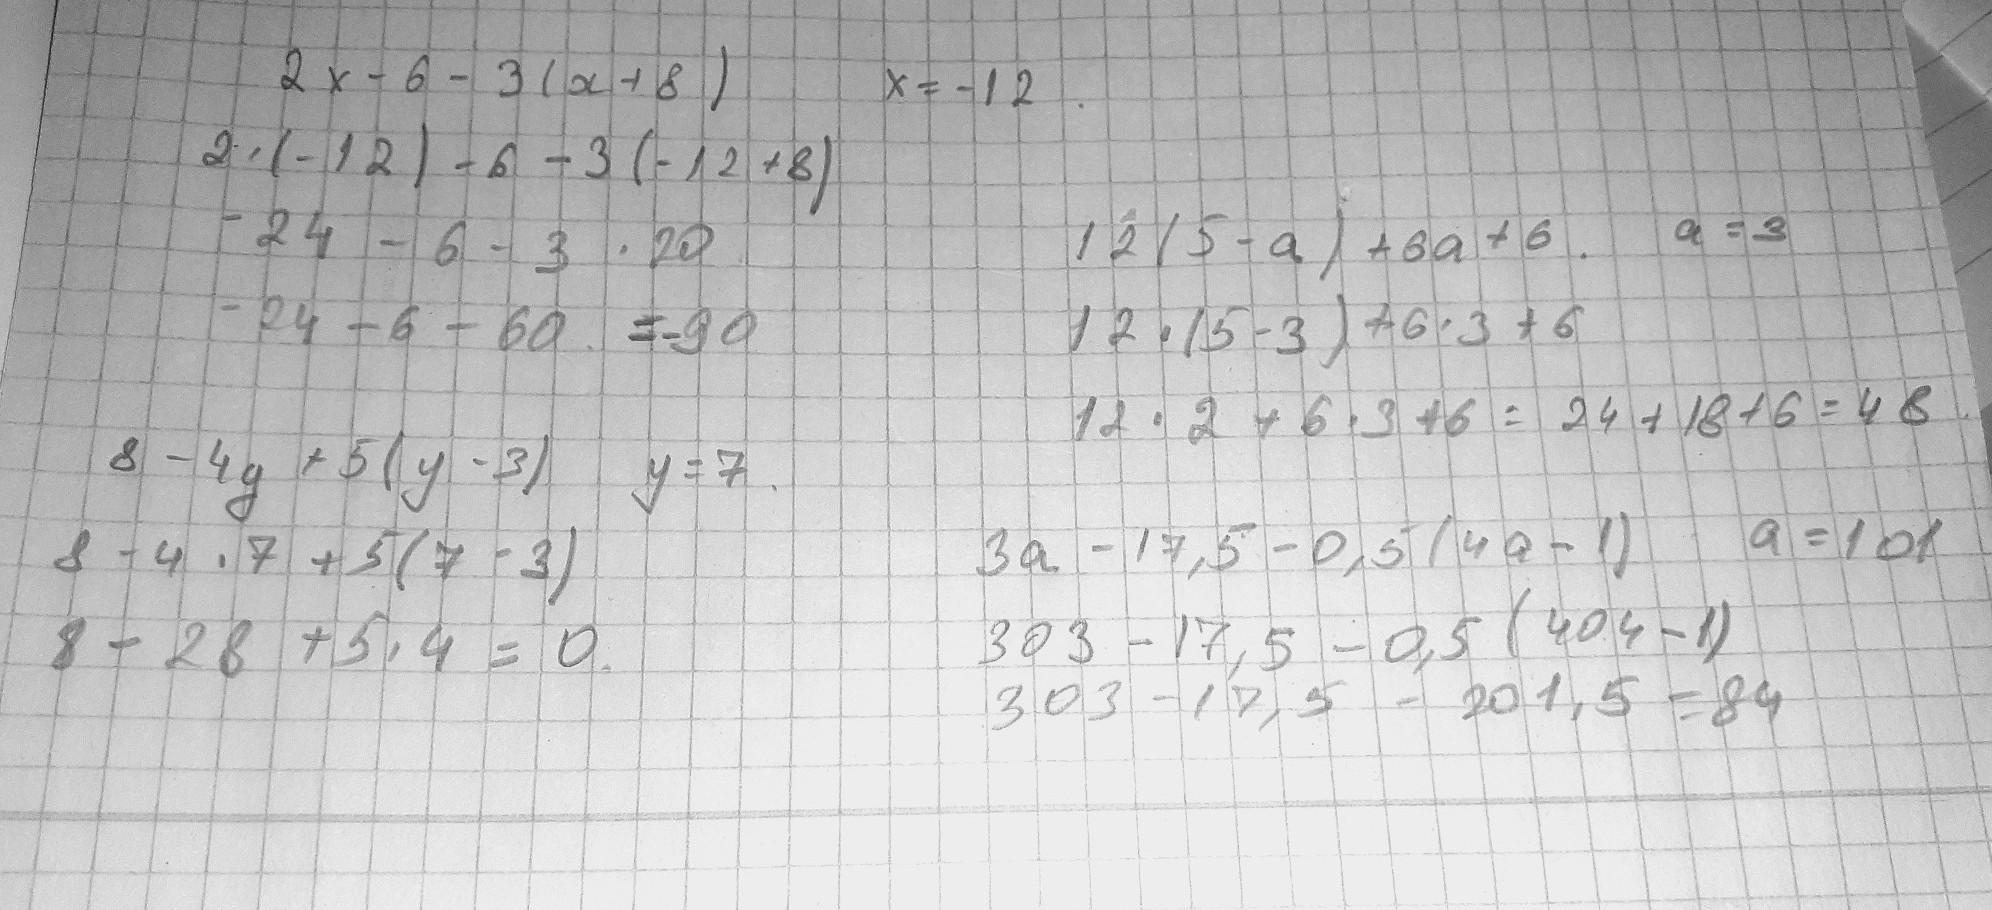 2x - 6 - 3(x+8) x = -12.
2·(-12) - 6 - 3(-12+8)
-24 - 6 - 3 · 20
-24 - 6 - 60 = -90
12(5-a) + 6a + 6. a = 3
12·(5-3) + 6·3 + 6
12·2 + 6·3 + 6 = 24 + 18 + 6 = 48.
8 - 4y + 5(y-3) y = 7.
8 - 4·7 + 5(7-3)
8 - 28 + 5·4 = 0.
3a - 17,5 - 0,5(4a-1) a = 101
303 - 17,5 - 0,5(404-1)
303 - 17,5 - 201,5 = 84